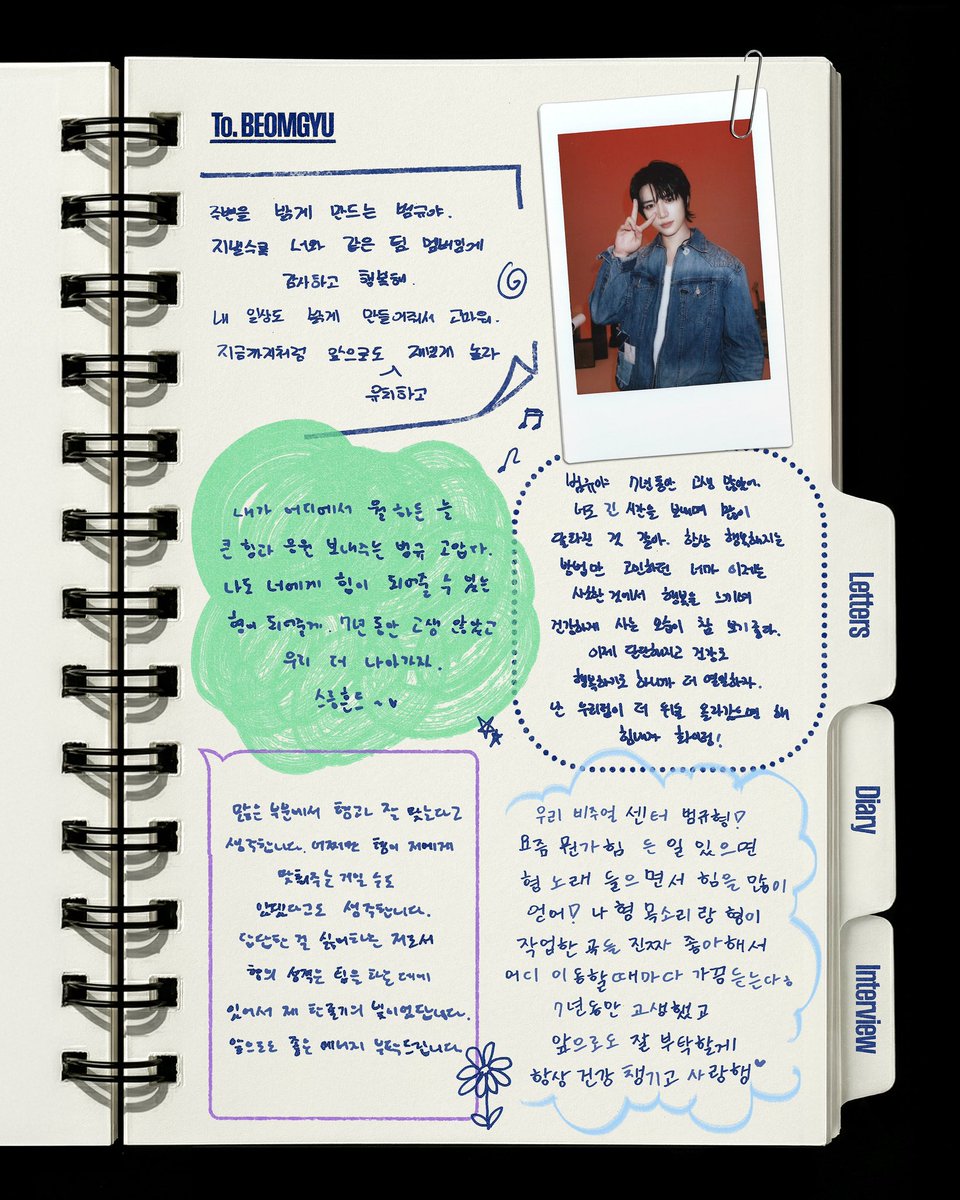 To. BEOMGYU
주변을 밝게 만드는 범규야.
지낼수록 너와 같은 팀 멤버인게
감사하고 행복해.
내 일상도 밝게 만들어줘서 고마워.
지금까지처럼 앞으로도 재밌게 놀자
유쾌하고
내가 어디에서 뭘 하든 늘
큰 힘과 응원 보내주는 범규 고맙다.
나도 너에게 힘이 되어줄 수 있는
형이 되어줄게. 7년 동안 고생 많았고
우리 더 나아가자.
스릉흔드 ~♥
범규야 7년동안 고생 많았어.
너도 긴 시간을 보내며 많이
달라진 것 같아. 항상 행복해지는
방법만 고민하던 너마 이제는
사소한 것에서 행복을 느끼며
건강하게 사는 모습이 참 보기좋다.
이제 단단해지고 건강도
행복하기도 하니까 더 열일하자.
난 우리팀이 더 위를 올라갔으면 해
힘내자 화이팅!
많은 부분에서 형과 잘 맞는다고
생각합니다. 어쩌면 형이 저에게
맞춰주는 거일 수도
있겠다고도 생각합니다.
답답한 걸 싫어하는 저로서
형의 성격은 팀을 하는 데에
있어서 제 한줄기의 빛이었답니다.
앞으로도 좋은 에너지 부탁드립니다.
우리 비주얼 센터 범규형?
요즘 뭔가 힘 든 일 있으면
형 노래 들으면서 힘을 많이
얻어? 나 형 목소리랑 형이
작업한 곡들 진짜 좋아해서
어디 이동할때마다 가끔 듣는다?
7년동안 고생했고
앞으로도 잘 부탁할게
항상 건강 챙기고 사랑행♥
Letters
Diary
Interview